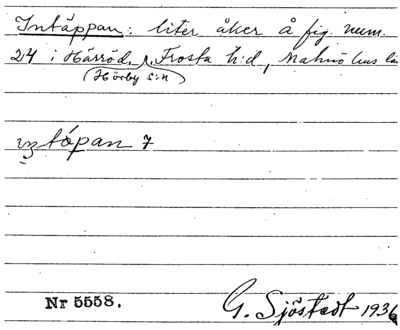 Intäppan: liten åker å fig. num.
24 i Härröd, Frosta h:d, Malmöhus lä
(Hörby s:n)
tåpan 7
Nr 5558.
G. Sjöstedt 1936